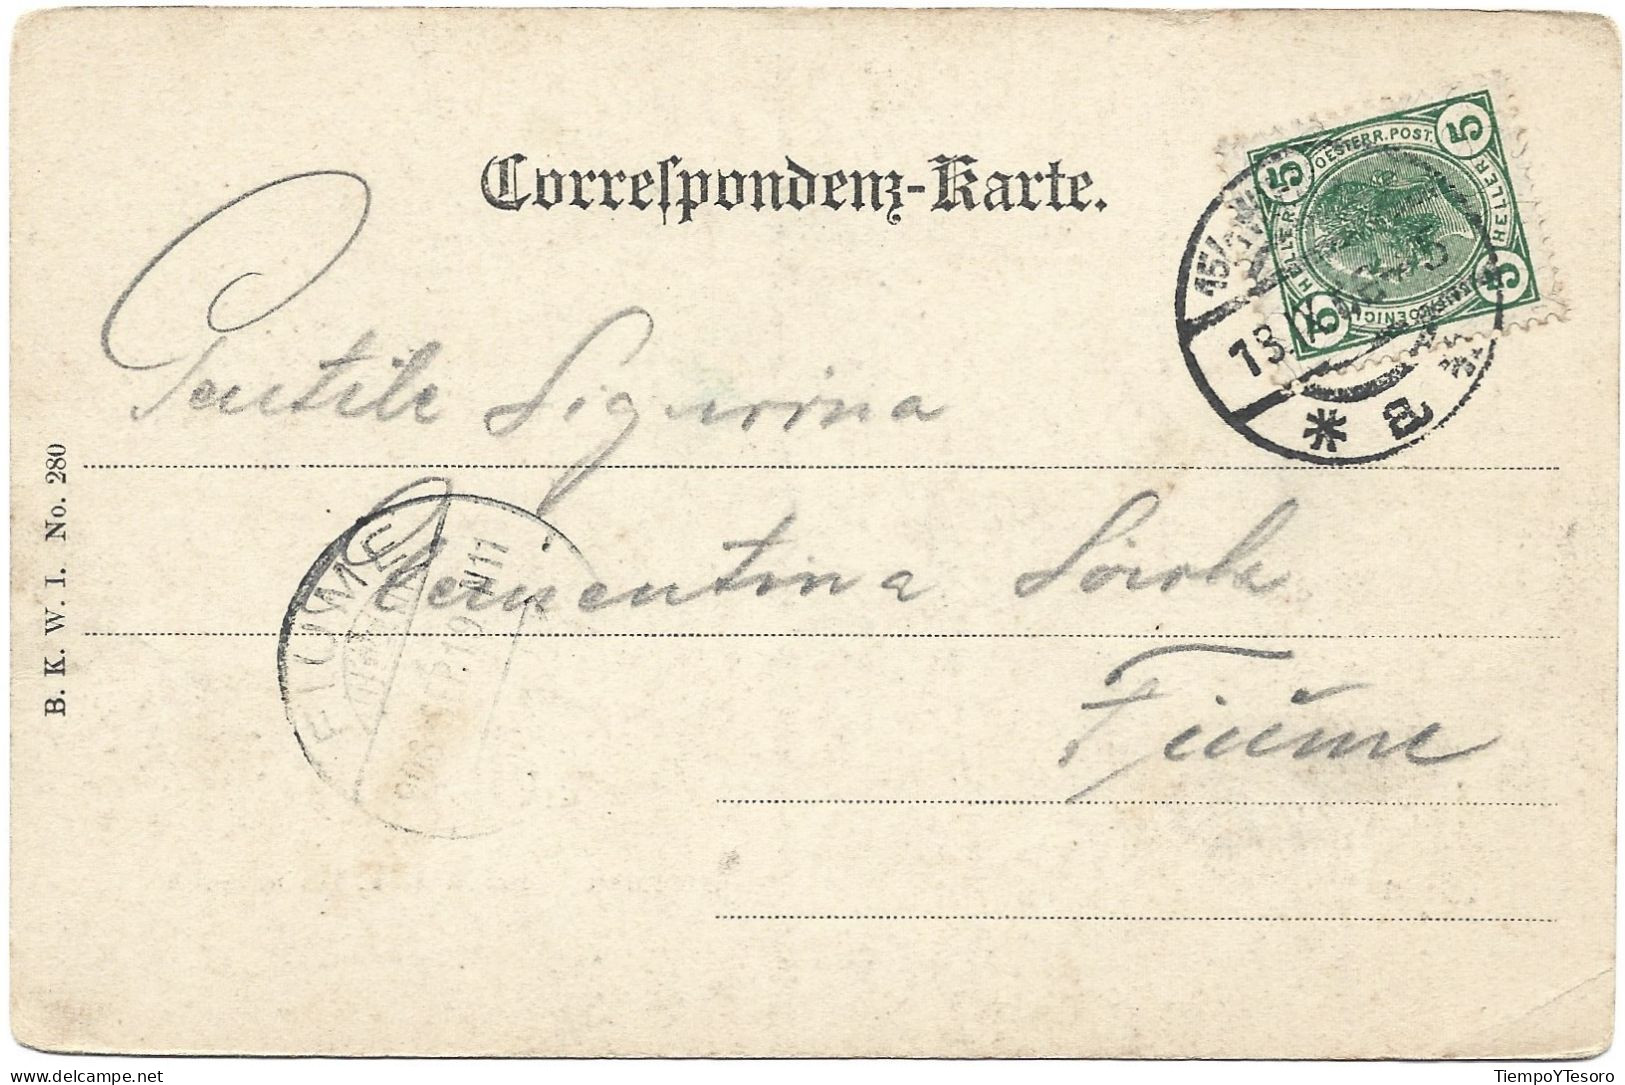 Correſpondenz-Karte.
5 5
OESTERR. POST.
HELLER HELLER
5 5
15/1
13. IX
* a *
Gentile Signorina
Clementina
Fiúme
FIUME
N11
B. K. W. I. No. 280
www.delcampe.net TiempoYTesoro